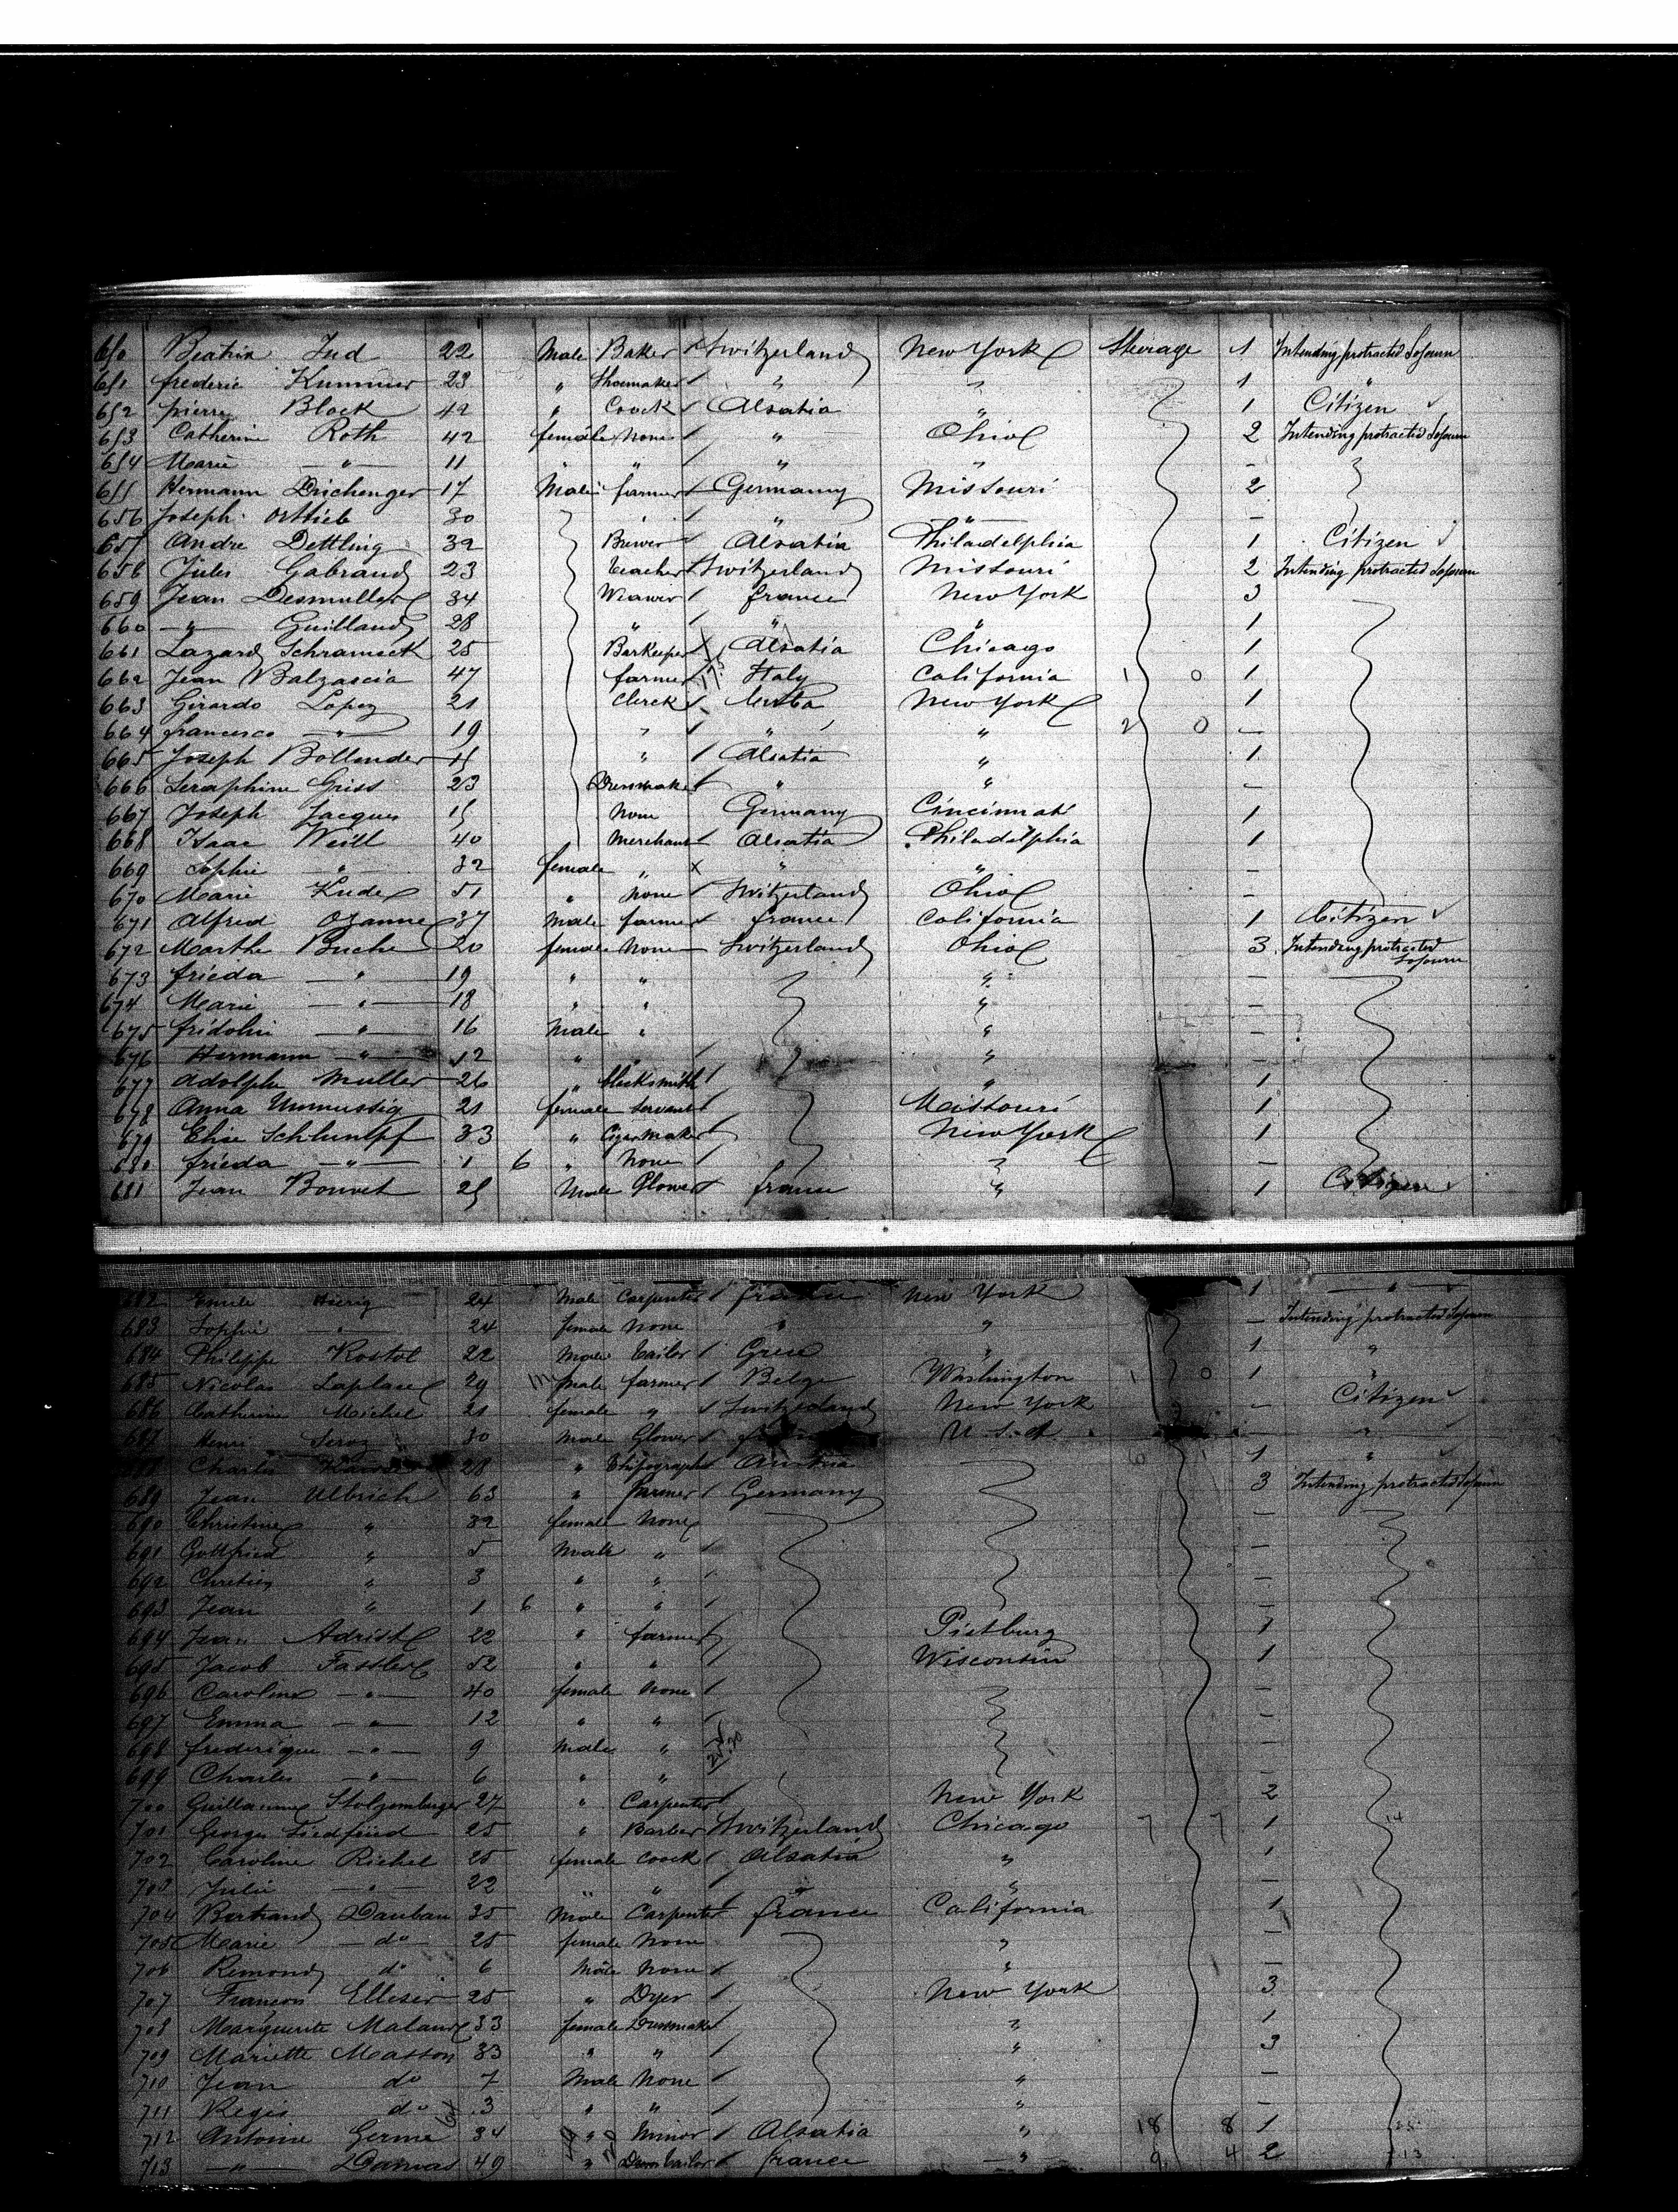 650 Beatrix Jud 22 Male Baker Switzerland New York Steerage 1 Intending protracted Sojourn
651 frederic Kummer 23 " Shoemaker " " 1 "
652 pierre Block 42 " Coock Alsatia " 1 Citizen
653 Catherine Roth 42 female None " Ohio 2 Intending protracted Sojourn
654 Marie " 11 " " " " -
655 Hermann 17 Male farmer Germany Missouri 2
656 Joseph Ortlieb 30 " " " -
657 Andre Dettling 32 Brewer Alsatia Philadelphia 1 Citizen
658 Jules Gabraud 23 teacher Switzerland Missouri 2 Intending protracted Sojourn
659 Jean Desmuller 34 Weawer france New York 3
660 " Guilland 28 " " " 1
661 Lazard Schrameck 25 Barkeeper Alsatia Chicago 1
662 Jean Balzascia 47 farmer Italy California 1 0 1
663 Girardo Lopez 21 Clerck New York 1
664 francesco " 19 " " " 2 0 -
665 Joseph Bollender 15 " Alsatia " 1
666 Seraphine Griss 23 Dressmaker " " -
667 Joseph Jacques 15 None Germany Cincinnati 1
668 Isaac Weill 40 Merchant Alsatia Philadelphia 1
669 Sophie " 32 female " x " " -
670 Marie 51 " None Switzerland Ohio -
671 Alfred Ozanne 37 Male farmer france California 1 Citizen
672 Marthe Buche 20 female None Switzerland Ohio 3 Intending protracted Sojourn
673 frieda " 19 " " " -
674 Marie " 18 " " " -
675 fridolin " 16 Male " " -
676 Hermann " 12 " " " -
677 Adolphe Muller 26 " blacksmith " 1
678 Anna Unmussig 21 female Servant Missouri 1
679 Elise Schlumpf 33 " Cigarmaker New York 1
680 frieda " 1 6 " None " -
681 Jean Bouvet 25 Male Glower france " 1 Citizen
682 Emile 24 Male Carpenter france New York 1 "
683 Sophie " 24 female None " " - Intending protracted Sojourn
684 Philippe Kostol 22 Male tailor Grece " 1 "
685 Nicolas Laplace 29 Male farmer Belge Washington 1 0 1 "
686 Catherine Michel 21 female " Switzerland New York - Citizen
687 Henri 30 Male Glower U.S.A. - "
688 Charles 28 " Austria 1 "
689 Jean Ulbrich 63 " farmer Germany 3 Intending protracted Sojourn
690 Christine " 32 female None -
691 Gottfried " 5 Male " -
692 Chretien " 3 " " -
693 Jean " 1 6 " " -
694 Jean Adrist 22 " farmer Pittburg 1
695 Jacob Fassler 52 " " Wisconsin 1
696 Caroline " 40 female None -
697 Emma " 12 " " -
698 frederique " 9 Male " -
699 Charles " 6 " " -
700 Guillaume Stolzemburger 27 " Carpenter New York 2
701 Georges 25 " Barber Switzerland Chicago 7 7 1 14
702 Caroline Richel 25 female Coock Alsatia " 1
703 Julie " 22 " " " " -
704 Bertrand Dauban 35 Male Carpenter france California 1
705 Marie do 25 female None " -
706 Remond do 6 Male None " -
707 Francois Ellisir 25 " Dyer New York 3
708 Marguerite 33 female Dressmaker " 1
709 Mariette Masson 33 " " " 3
710 Jean do 7 Male None " -
711 Regis do 3 " " " -
712 Antoine Germe 34 " Minor Alsatia " 18 8 1
713 " Damas 49 " france " 9 4 2 13